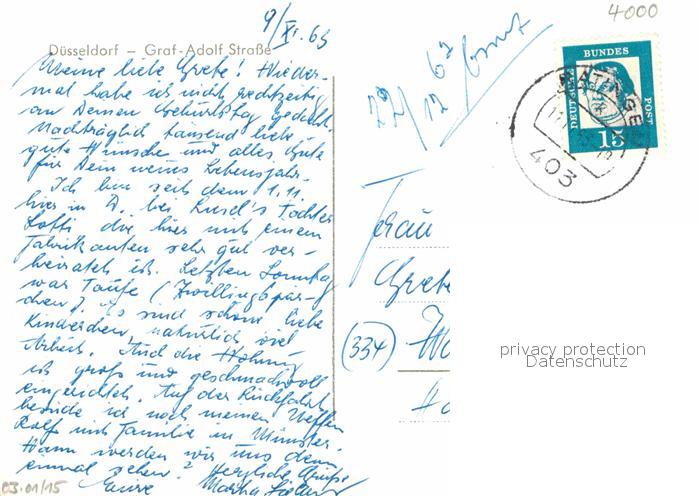 9/XI. 63
4000
Düsseldorf – Graf-Adolf Straße
Meine liebe Grete! Wieder-
mal habe ich nicht rechtzeitig
an Deinen Geburtstag gedacht.
Nachträglich tausend liebe
gute Wünsche und alles Gute
für Dein neues Lebensjahr.
Ich bin seit dem 1.11.
hier in D. bei Tochter
Lotti die hier mit einem
Fabrikanten sehr gut ver-
heiratet ist. Letzten Sonntag
war Taufe (Zwillingspär-
chen) es sind schöne liebe
Kinderchen, natürlich viel
Arbeit. Und die Wohnung
ist groß und geschmackvoll
eingerichtet. Auf der Rückfahrt
besuche ich noch meinen Neffen
Rolf mit Familie in Münster.
Wann werden wir uns denn
einmal sehen? Herzliche Grüße
Eure Martha
22/12 63
DEUTSCHE
BUNDES
POST
15
RATINGEN
403
Frau
Grete
(334) Wo
privacy protection
Datenschutz
03.01/15